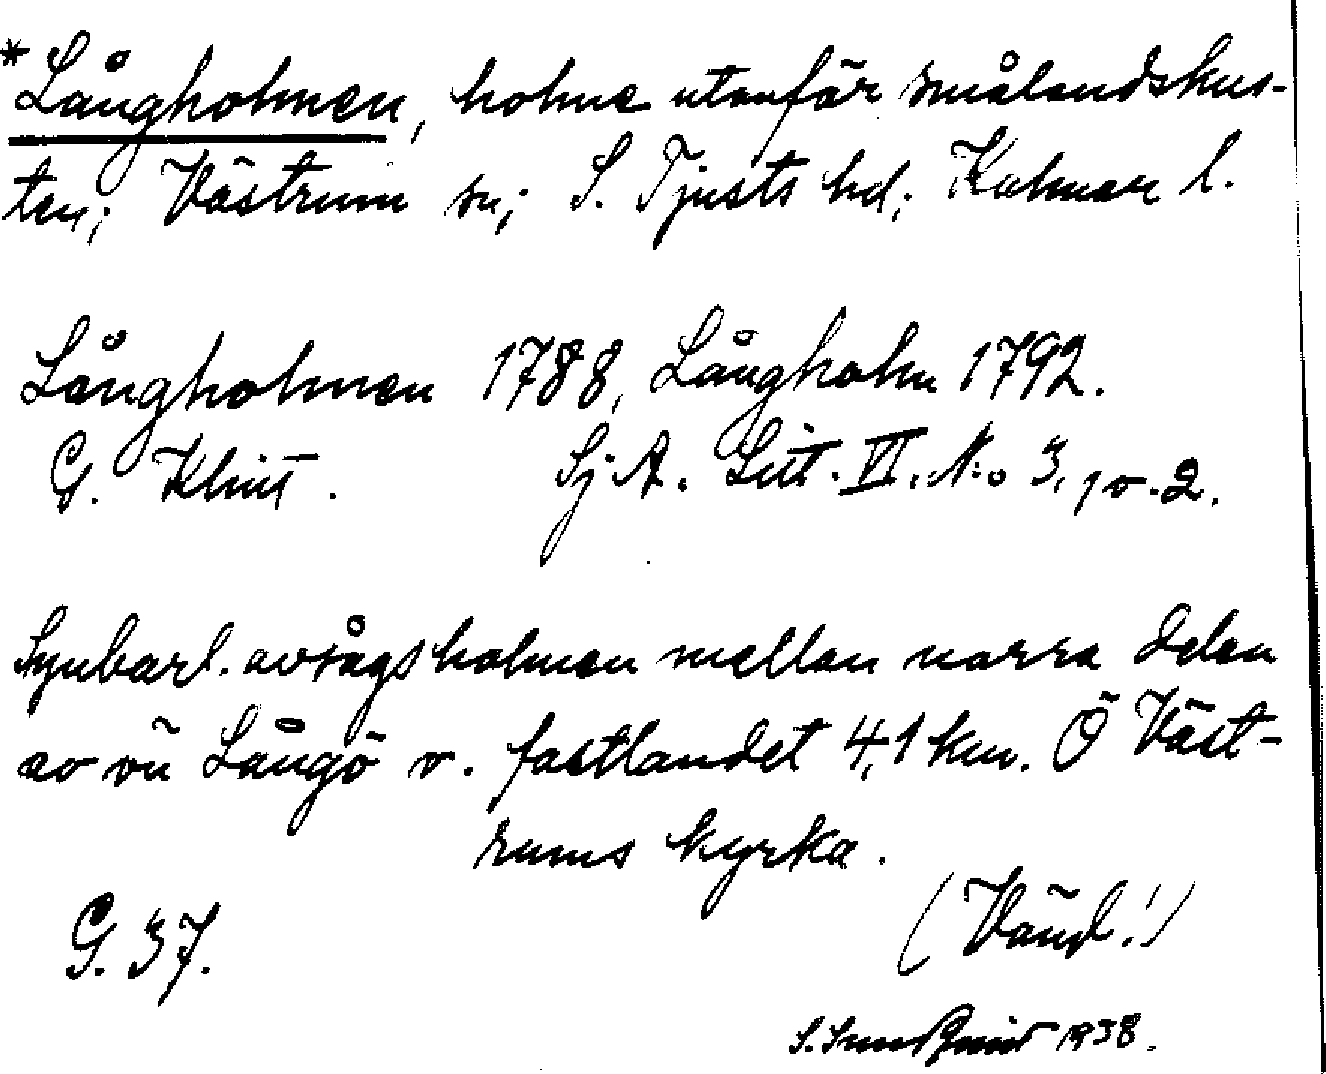 *Långholmen, holme utanför smålandskus-
ten; Västrum sn; S. Tjusts hd; Kalmar l.
Långholmen 1788, Långholm 1792.
G. Klint. Sj A. Litt. VI. No 3, 1 o. 2.
Synbarl. avsågs holmen mellan norra delen
av ön Långö o. fastlandet 4,1 km. Ö Väst-
rums kyrka.
(Vänd!)
G. 37.
S. 1938.